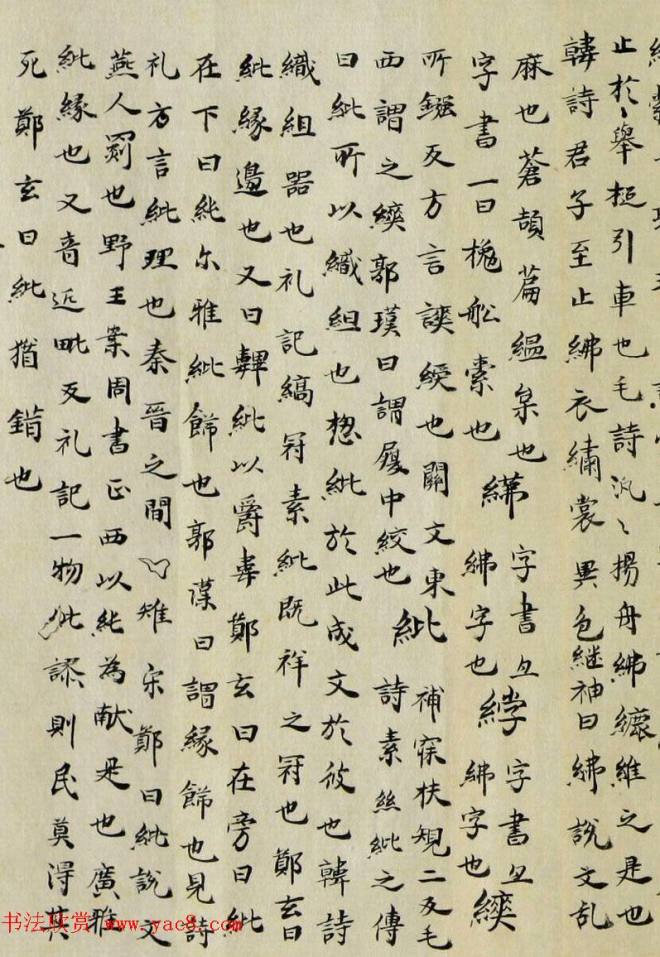 止於〻舉梴引車也毛詩汎〻揚舟紼纚維之是也
韓詩君子至止紼衣繡裳異色継袖曰紼説文乱
麻也蒼頡篇緼枲也
字書一曰槐舩索也
字書亦
紼字也
綍
字書亦
紼字也
所反方言緶也關文東
西謂之郭璞曰謂履中絞也
紕
補寐扶規二反毛
詩素絲紕之傳
曰紕所以織組也揔紕於此成文於彼也韓詩
織組器也礼記縞冠素紕既祥之冠也鄭玄曰
紕縁邊也又曰韠紕以爵韋鄭玄曰在旁曰紕
在下曰純尓雅紕餝也郭璞曰謂縁餝也見詩
礼方言紕理也秦晉之間雉宋鄭曰紕説文
燕人罽也野王案周書正西以紕為献是也廣雅
紕縁也又音近毗反礼記一物紕繆則民莫得其
死鄭玄曰紕猶錯也
书法欣赏 www.yac8.com